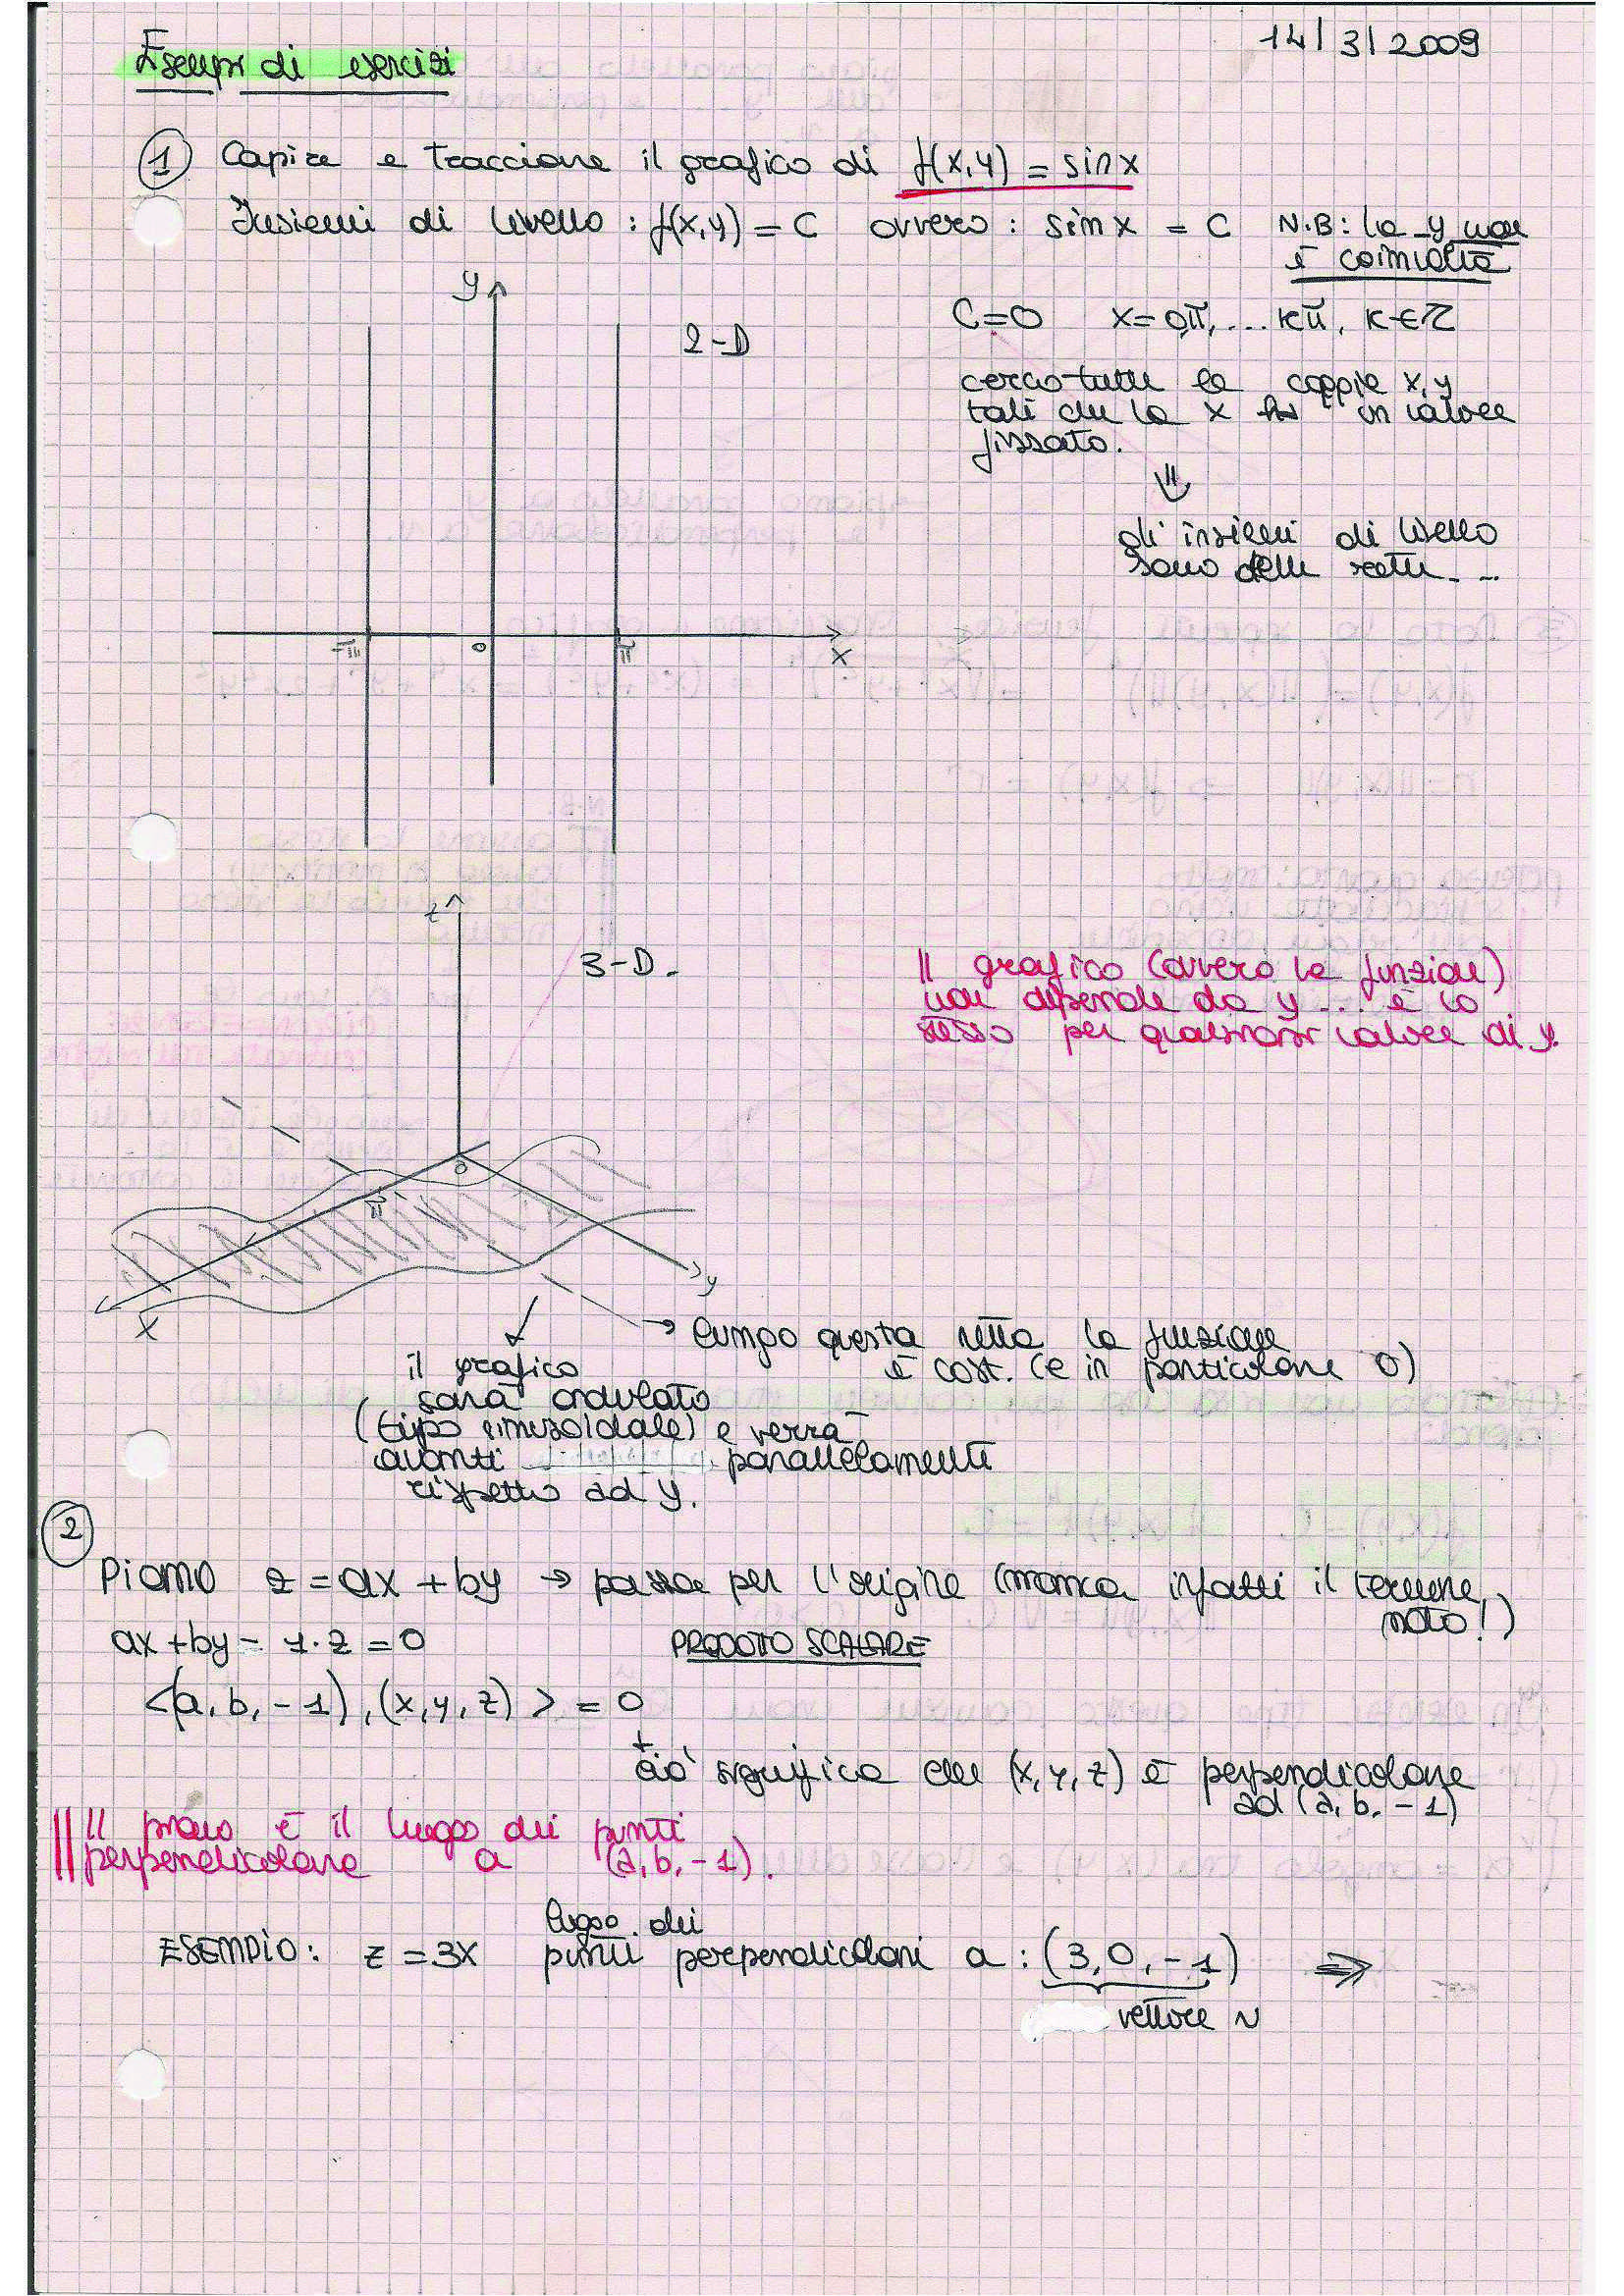 14/3/2009
Esempi di esercizi
1 Capire e tracciare il grafico di f(x,y) = sin x
Insiemi di livello : f(x,y) = C ovvero : sin x = C N.B: la y non
è coinvolta
y
2-D
C=0 x=0,π, ... kπ, k∈Z
cerco tutte le coppie x,y
tali che la x ha un valore
fissato.
⇓
gli insiemi di livello
sono delle rette...
-π 0 π x
z
3-D.
Il grafico (ovvero la funzione)
non dipende da y ... è lo
stesso per qualsiasi valore di y.
0
π
y
x
→ lungo questa retta la funzione
è cost. (e in particolare 0)
il grafico
sarà ondulato
(tipo sinusoidale) e verrà
avanti parallelamente
rispetto ad y.
2
Piano z = ax + by → passa per l'origine (manca infatti il termine
noto!)
ax + by - 1·z = 0 PRODOTTO SCALARE
<(a, b, -1), (x, y, z)> = 0
ciò significa che (x, y, z) è perpendicolare
ad (a, b, -1)
Il piano è il luogo dei punti
perpendicolare a (a, b, -1).
luogo dei
ESEMPIO: z = 3x punti perpendicolari a : (3, 0, -1) ⇒
vettore N